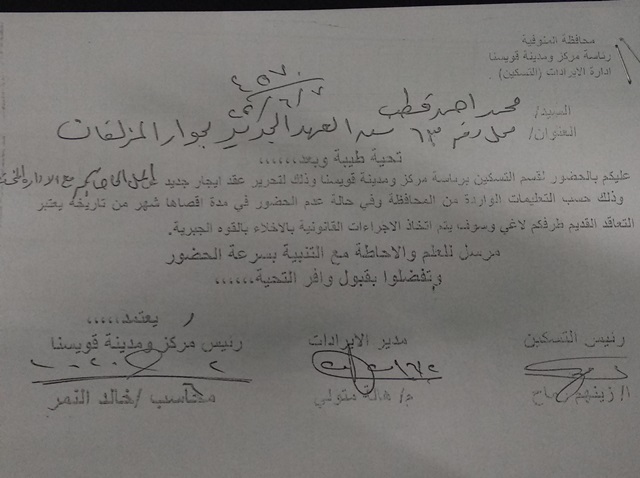 محافظة المنوفية
رئاسة مركز ومدينة قويسنا
ادارة الايرادات (التسكين)
السيد/ محمد احمد قطب
العنوان/ محل رقم ٦٣ العهد الجديد بجوار المزلقات
تحية طيبة وبعد،،،،،،
عليكم بالحضور لقسم التسكين برئاسة مركز ومدينة قويسنا وذلك لتحرير عقد ايجار جديد مع الادارة
وذلك حسب التعليمات الواردة من المحافظة وفي حالة عدم الحضور في مدة اقصاها شهر من تاريخه يعتبر
التعاقد القديم طرفكم لاغي وسوف يتم اتخاذ الاجراءات القانونية بالاخلاء بالقوه الجبرية.
مرسل للعلم والاحاطة مع التنبية بسرعة الحضور
وتفضلوا بقبول وافر التحية،،،،،،
يعتمد،،،،،
رئيس التسكين
مدير الايرادات
رئيس مركز ومدينة قويسنا
ا/ زينهم
م/ هالة متولي
محاسب /خالد النمر